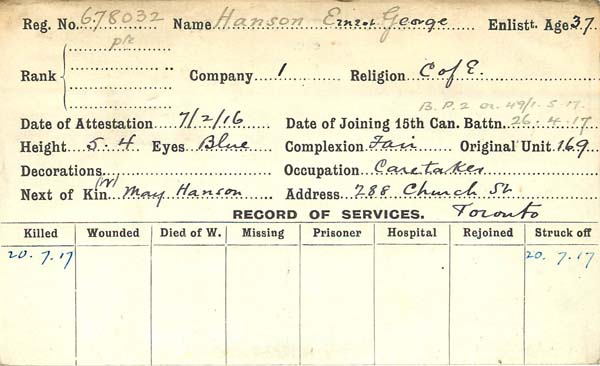 Reg. No. 678032 Name Hanson Ernest George Enlistt. Age 37
pte
Rank Company 1 Religion C of E.
B.P.2 or. 49/1.5.17.
Date of Attestation 7/2/16 Date of Joining 15th Can. Battn. 26.4.17
Height 5.4 Eyes Blue Complexion Fair Original Unit 169
Decorations Occupation Caretaker
Next of Kin (W) May Hanson Address 788 Church St
RECORD OF SERVICES. Toronto
Killed Wounded Died of W. Missing Prisoner Hospital Rejoined Struck off
20.7.17 20.7.17